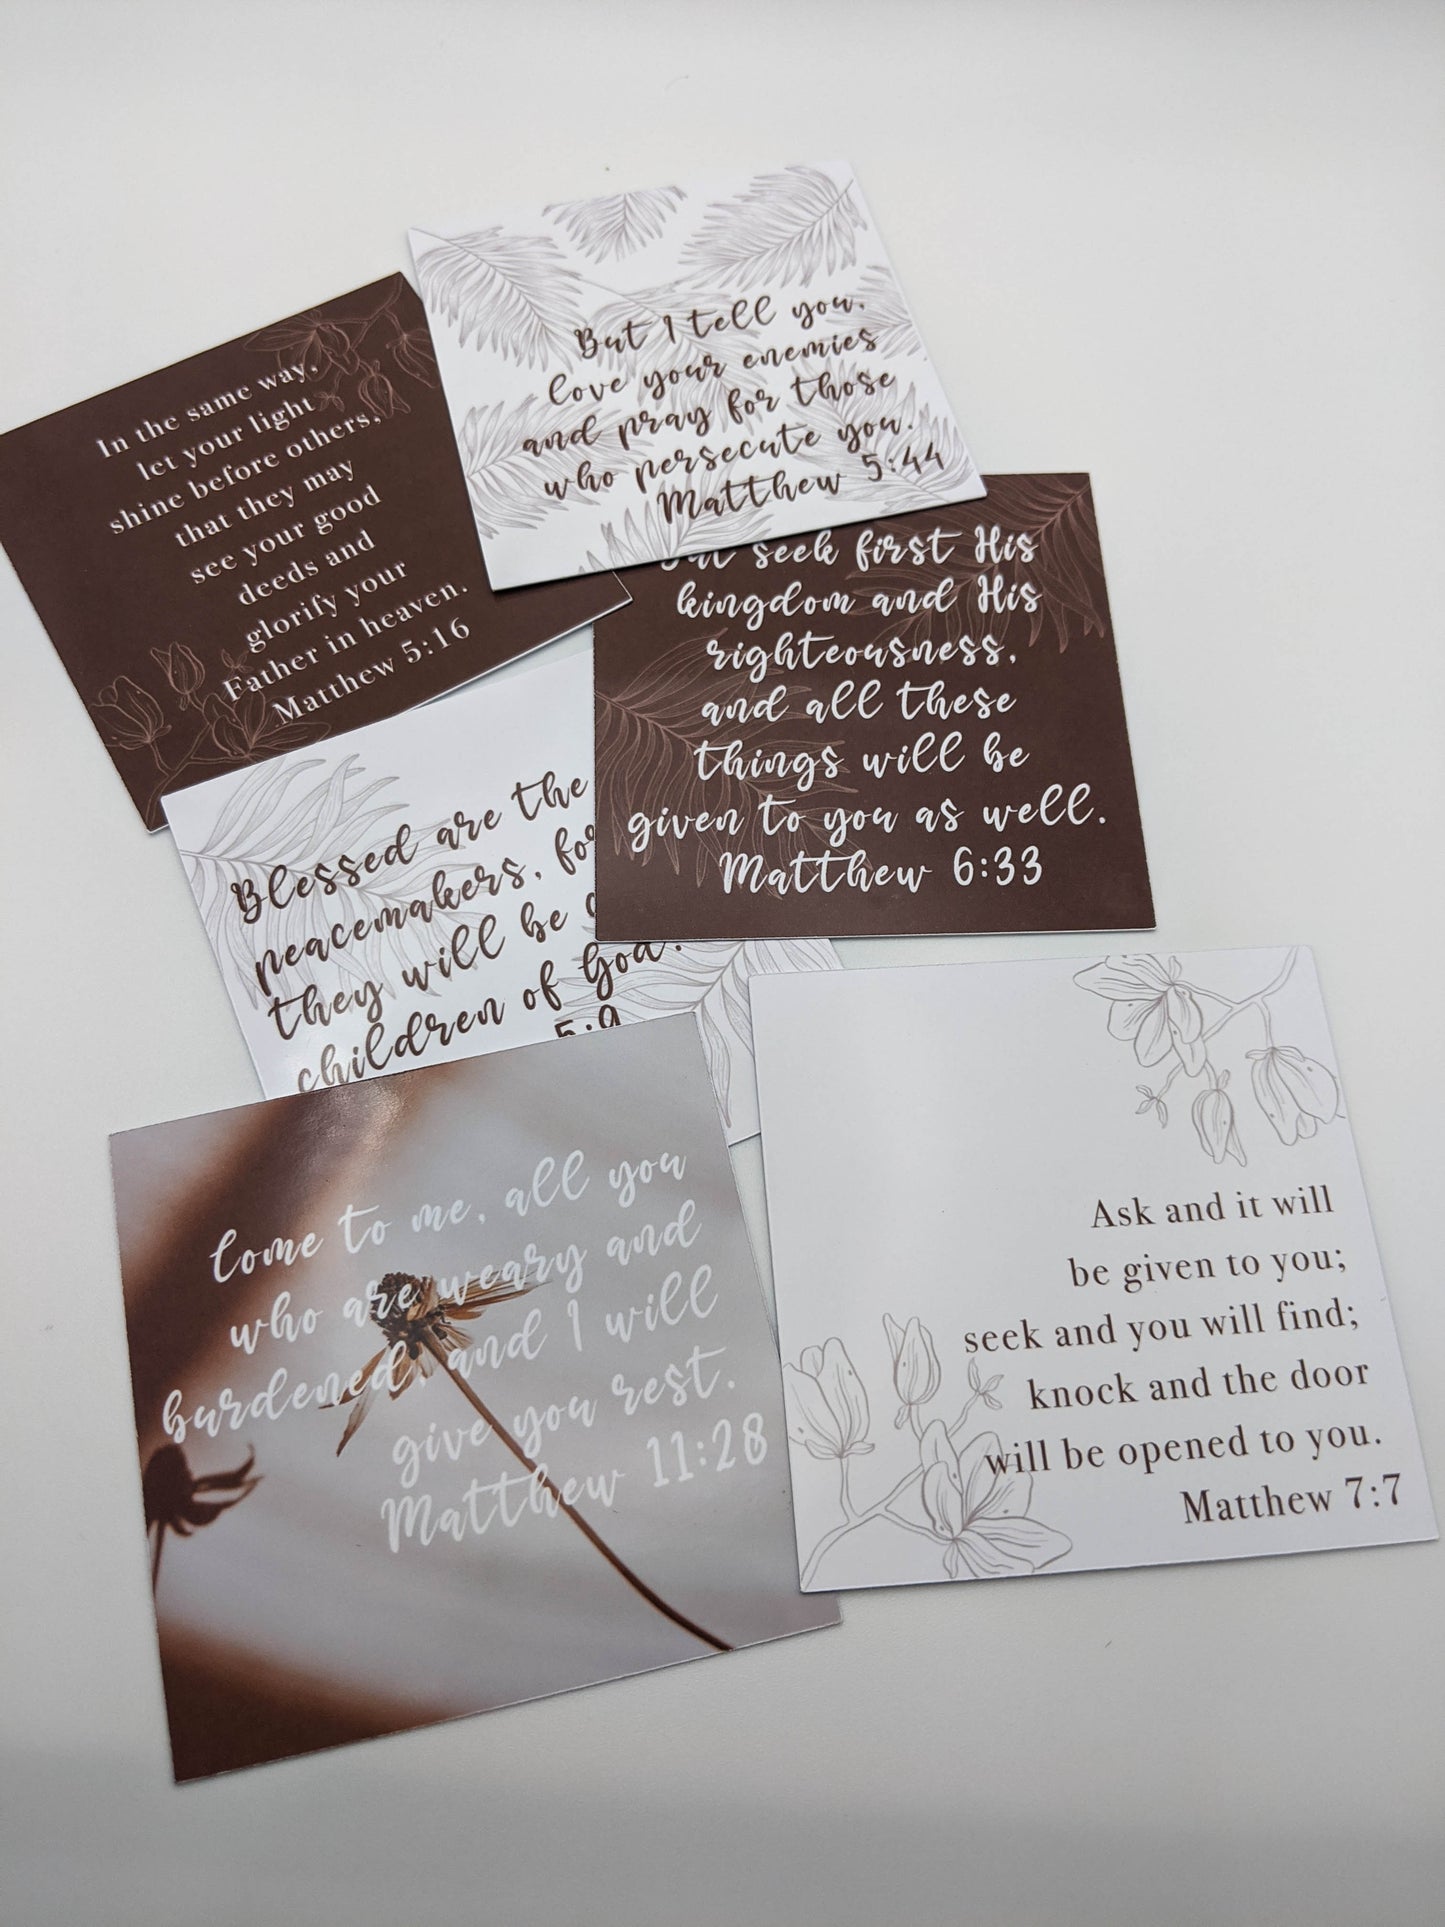 But I tell you,
love your enemies
and pray for those
who persecute you.
Matthew 5:44
In the same way,
let your light
shine before others,
that they may
see your good
deeds and
glorify your
Father in heaven.
Matthew 5:16
seek first His
kingdom and His
righteousness,
and all these
things will be
given to you as well.
Matthew 6:33
Blessed are the
peacemakers, for
they will be
children of God.
5:9
Come to me, all you
who are weary and
burdened, and I will
give you rest.
Matthew 11:28
Ask and it will
be given to you;
seek and you will find;
knock and the door
will be opened to you.
Matthew 7:7